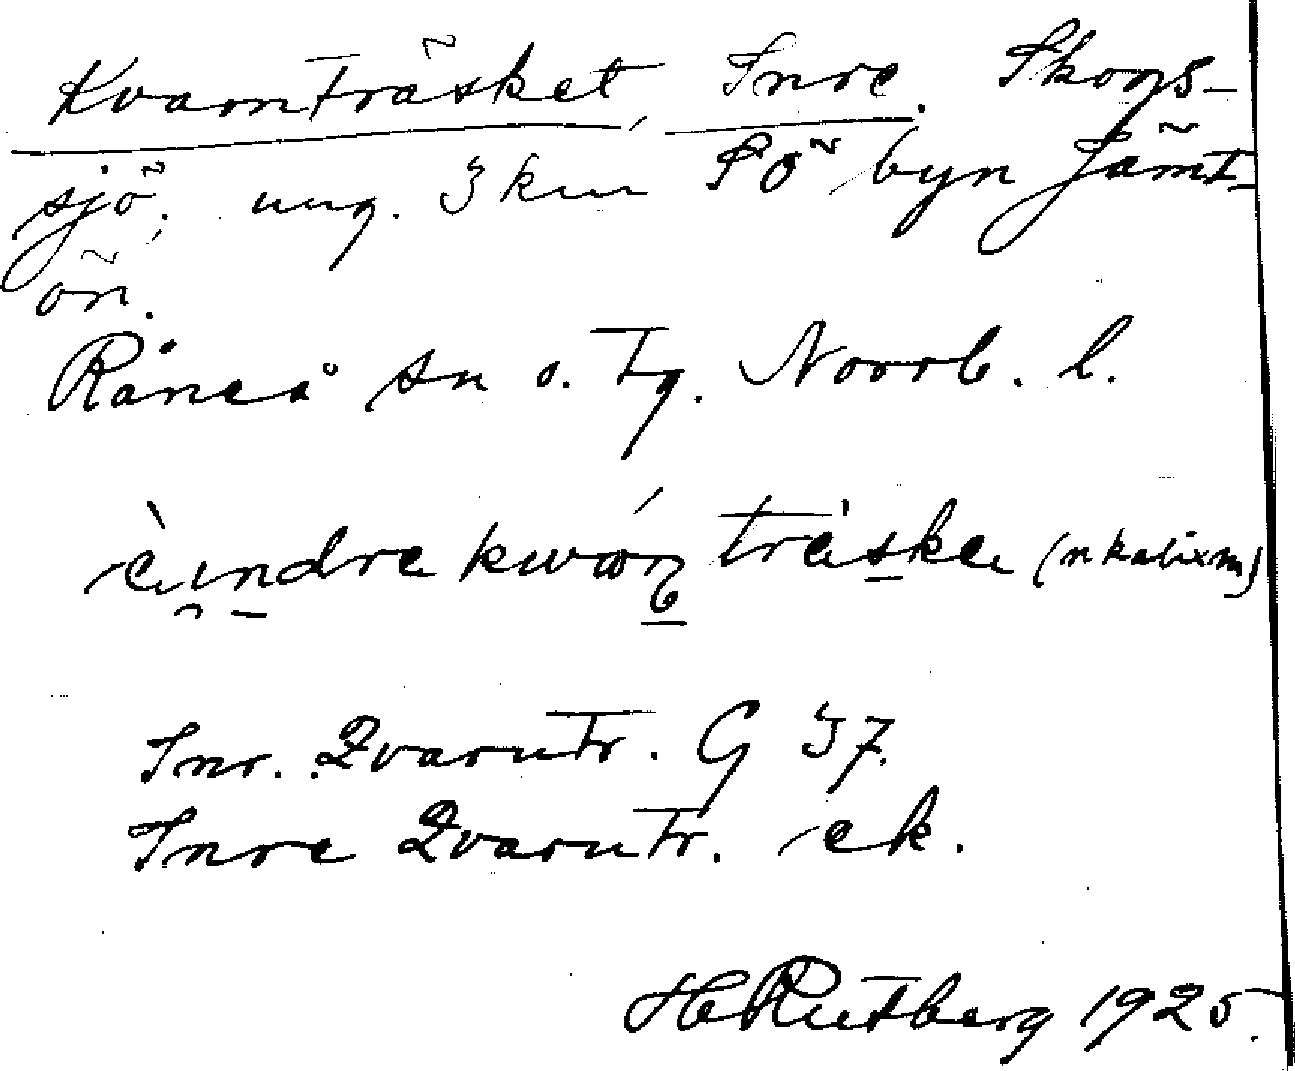 Kvarnträsket, Inre. Skogs-
sjö, ung. 3 km SÖ byn Jämt-
ön.
Råneå sn o. tg. Norrb. l.
träske (n kalixm)
Inr. Qvarntr. G 37.
Inre Qvarntr. ek.
H Rutberg 1925.